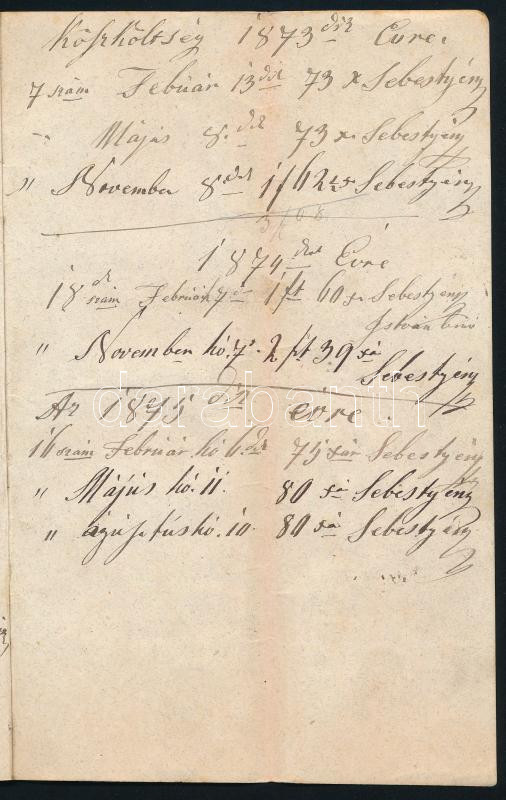 Köszköltség 1873dik Évre.
7 szám Febüár 13dik 73 x Sebestyény
" Május 8.dik 73 x Sebestyény
" November 8dik 1f 62 x Sebestyény
3f08
1874dik Évre
18dik szám Február 7d 1ft 60 x Sebestyény
István biró
" November hó. 7d. 2ft 39 xa
Sebestyény
Az 1875dik évre.
16 szám Február hó 6dik 75 xár Sebestyény
" Május hó. 11. 80 xa Sebestyény
" águstus hó. 10. 80 xa Sebestyény
darabanth